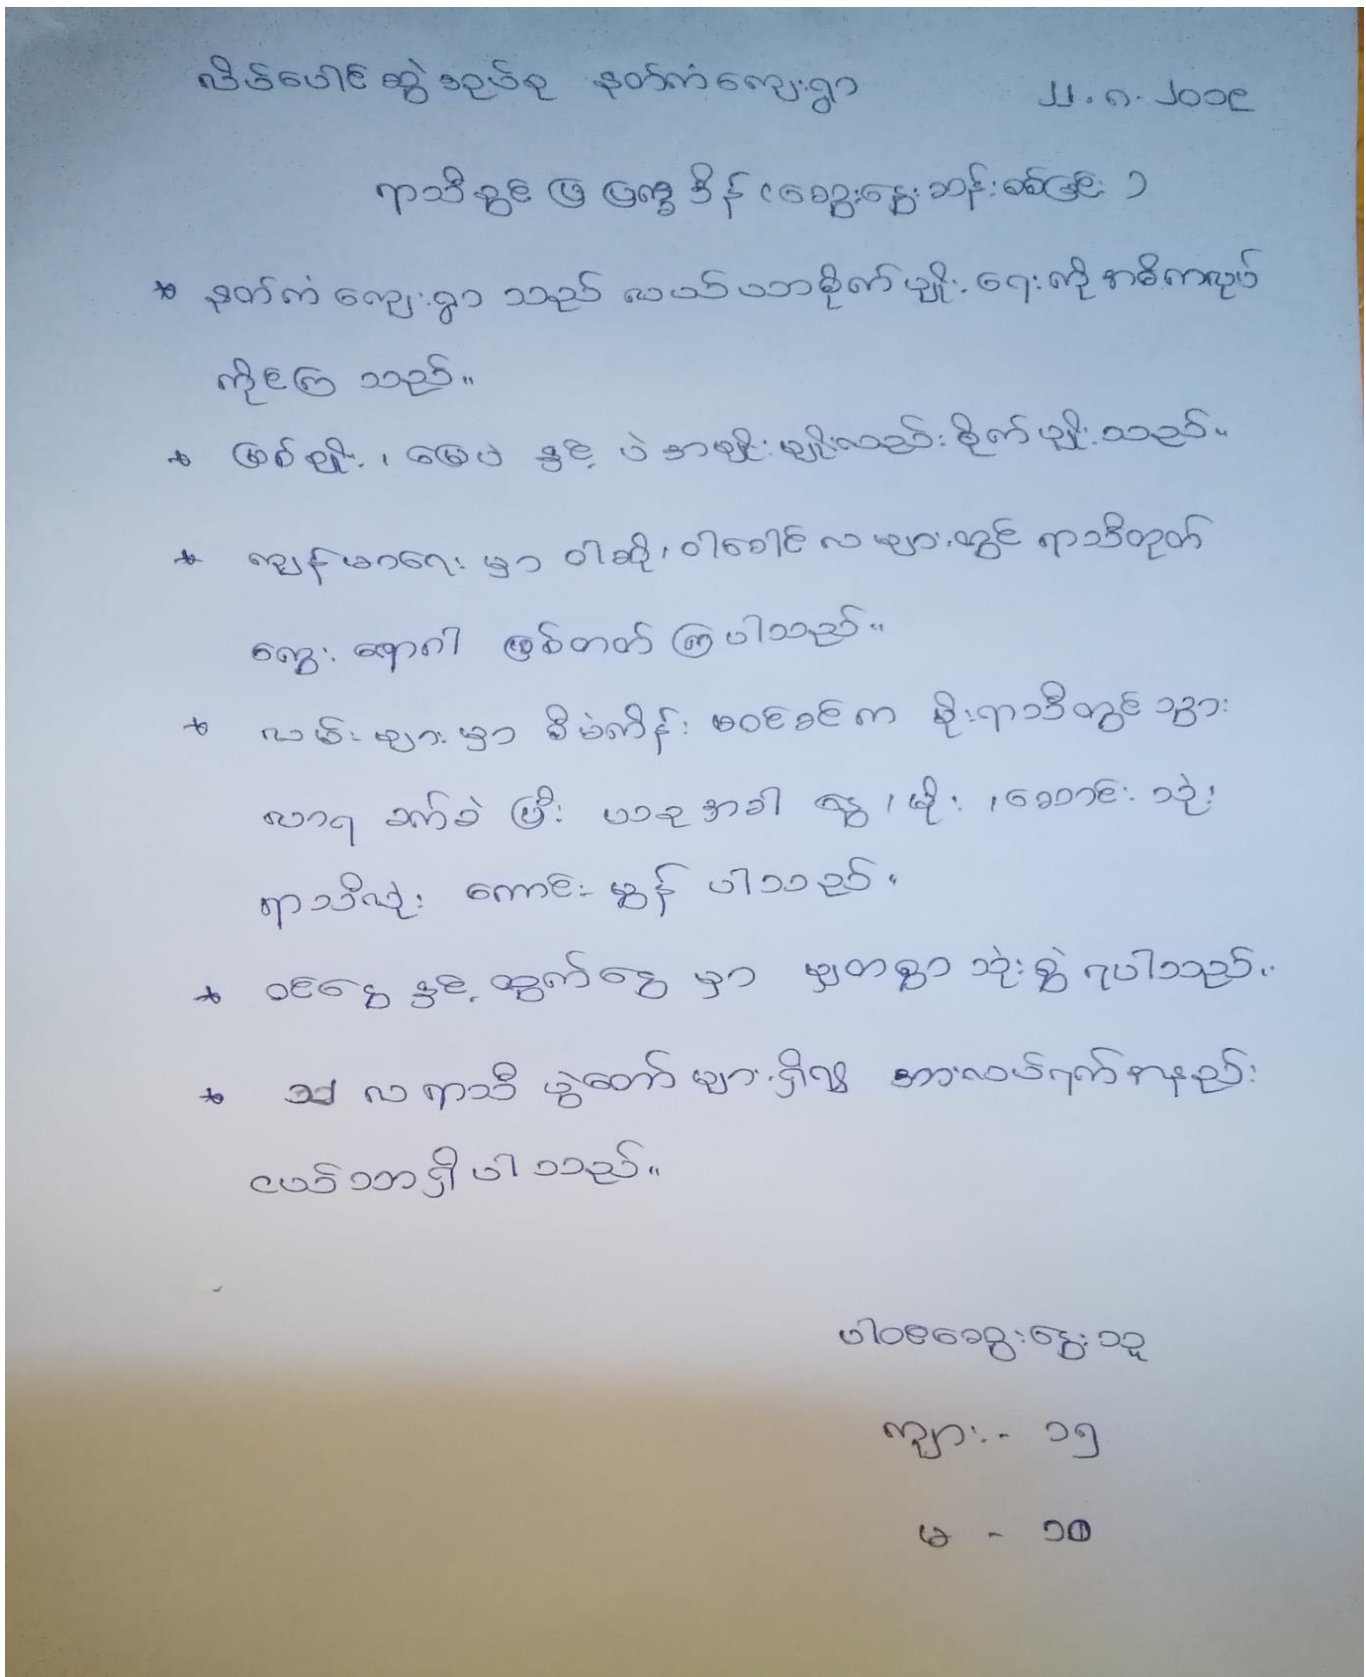 လိပ်ပေါင်ဆွဲအုပ်စု နတ်ကံကျေးရွာ ၂၂.၈.၂၀၁၉
ရာသီခွင်ပြ ပြက္ခဒိန် (ဆွေးနွေးဆန်းစစ်ခြင်း)
* နတ်ကံကျေးရွာ သည် လယ်ယာစိုက်ပျိုးရေးကို အဓိကလုပ်
ကိုင်ကြ သည်။
* မြစ်ချိုး၊ မြေပဲ နှင့် ပဲအမျိုးမျိုးလည်းစိုက်ပျိုးသည်။
* ကျန်မာရေး မှာ ဝါဆို၊ ဝါခေါင် လ များတွင် ရာသီတုတ်
ကွေး ရောဂါ ဖြစ်တတ် ကြပါသည်။
* လမ်းများမှာ စီမံကိန်း မဝင်ခင်က မိုးရာသီတွင် သွား
လာရ ခက်ခဲ ပြီး ယခုအခါ နွေ၊ မိုး၊ ဆောင်း သုံး
ရာသီလုံး ကောင်းမွန် ပါသည်။
* ဝင်ငွေ နှင့် ထွက်ငွေ မှာ မျှတစွာ သုံးစွဲ ရပါသည်။
* ၁၂ လ ရာသီ ပွဲတော် များရှိလျှ အားလပ်ရက်အနည်း
ငယ်သာရှိပါသည်။
ပါဝင်ဆွေးနွေးသူ
ကျား - ၁၅
မ - ၁၀